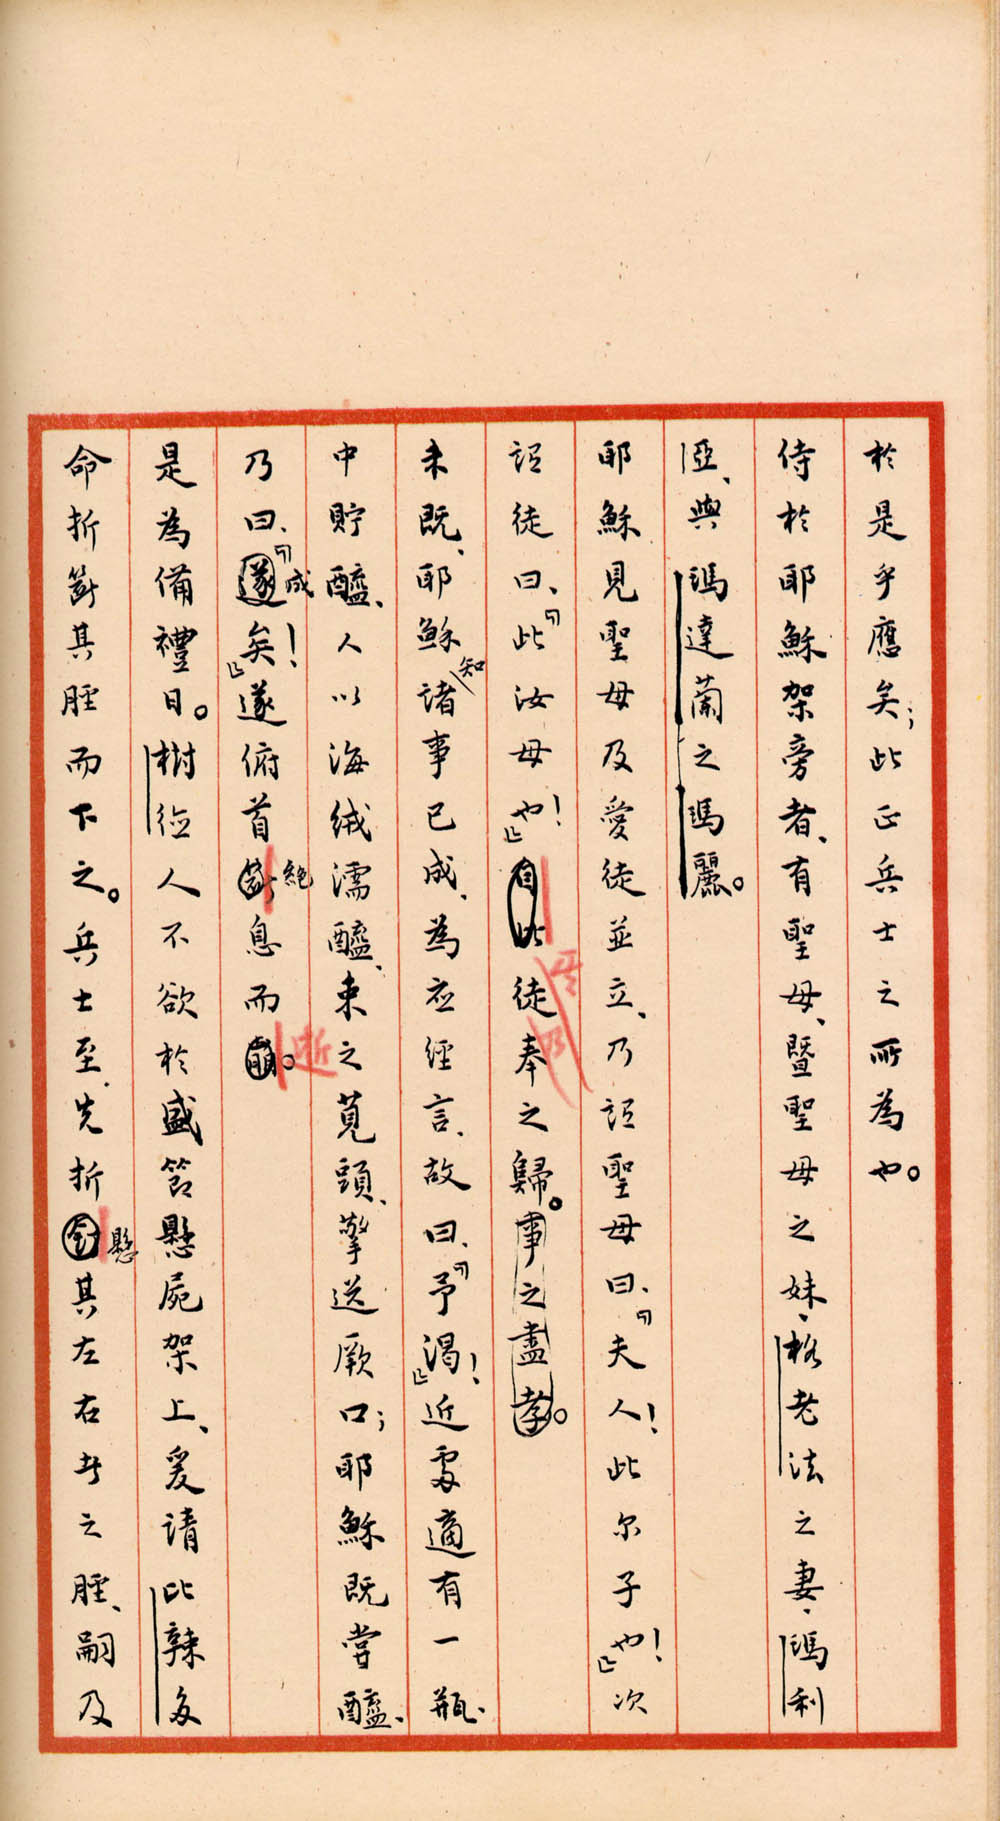 於是乎應矣；此正兵士之所為也。
侍於耶穌架旁者、有聖母、暨聖母之妹、格老法之妻、瑪利
亞、與瑪達蘭之瑪麗。
耶穌見聖母及愛徒並立、乃語聖母曰、「夫人！此尔子也！」次
語徒曰、「此汝母也！」自此徒奉之歸。事之盡孝。
未既、耶穌知諸事已成、為应經言、故曰、「予渴！」近處適有一瓶、
中貯醯、人以海絨濡醯、束之莧頭、擎送厥口；耶穌既嘗醯、
乃曰、「遂成矣！」遂俯首斷絕息而崩逝。
是為備禮日。樹俭人不欲於盛節懸屍架上、爰請比辣多
命折斷其脛而下之。兵士至、先折釘懸其左右者之脛、嗣及